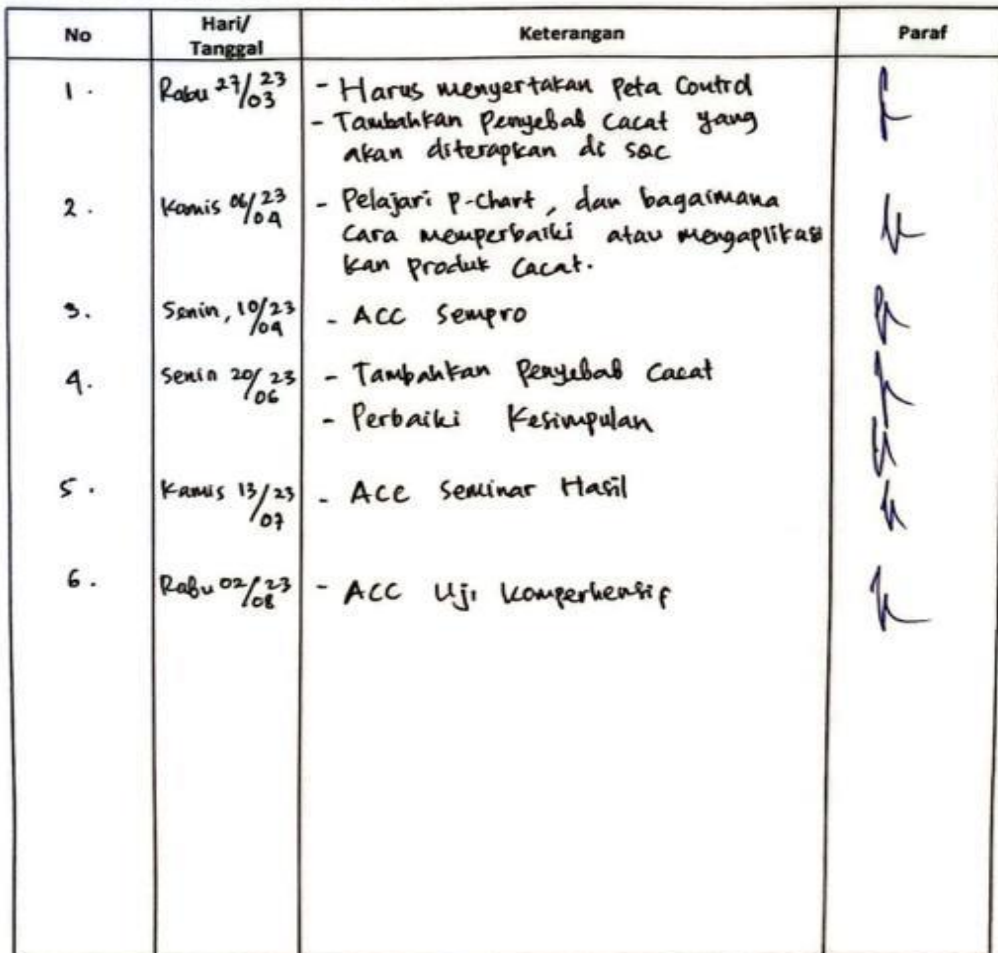 No Hari/ Tanggal Keterangan Paraf
1. Rabu 27/03 23 - Harus menyertakan Peta Control
- Tambahkan Penyebab Cacat yang
akan diterapkan di SQC
2. Kamis 06/04 23 - Pelajari P-Chart, dan bagaimana
Cara memperbaiki atau mengaplikasi
kan Produk Cacat.
3. Senin, 10/04 23 - ACC Sempro
4. Senin 20/06 23 - Tambahkan Penyebab Cacat
- Perbaiki Kesimpulan
5. Kamis 13/07 23 - ACC Seminar Hasil
6. Rabu 02/08 23 - ACC Uji Komperhensif